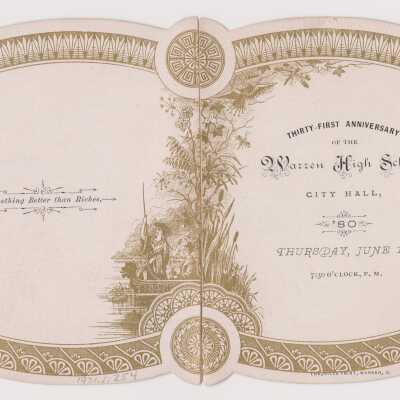 othing Better than Riches,
1930.1.254
THIRTY-FIRST ANNIVERSARY
OF THE
Warren High Sch
CITY HALL,
'80
THURSDAY, JUNE
7:30 O'CLOCK, P. M.
WARREN, O.